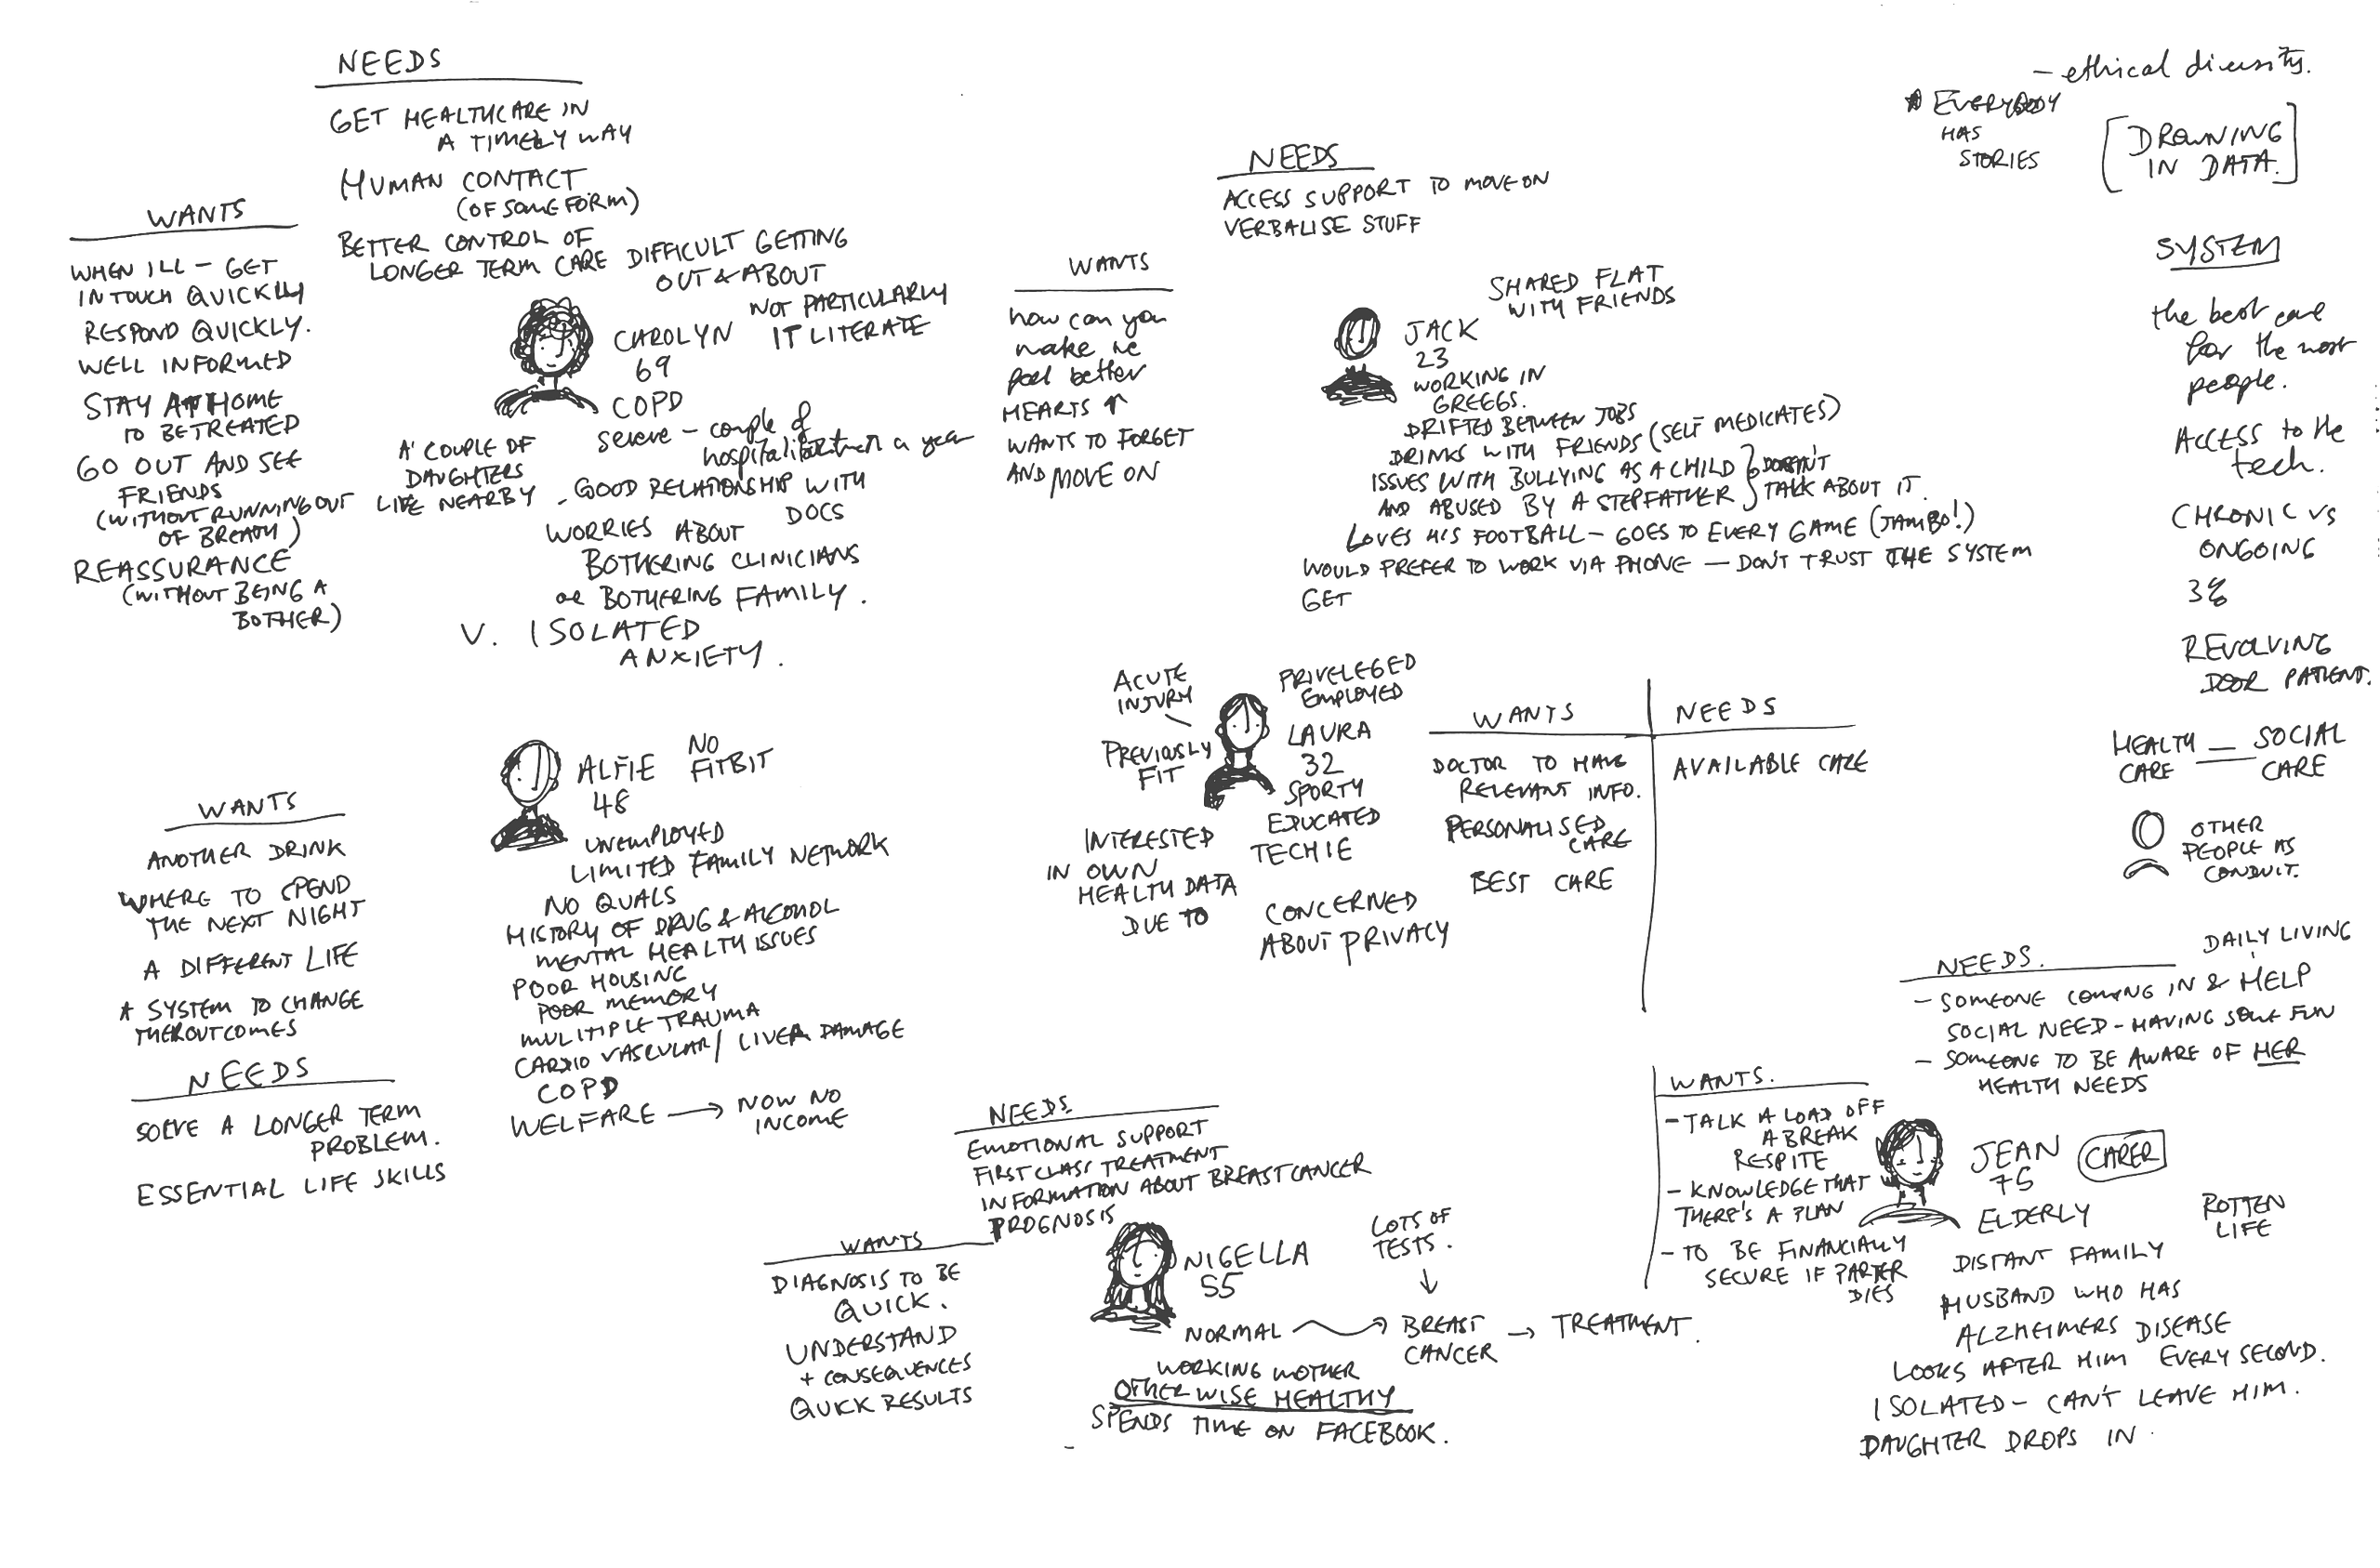 NEEDS
GET HEALTHCARE IN
A TIMELY WAY
HUMAN CONTACT
(OF SOME FORM)
BETTER CONTROL OF
LONGER TERM CARE
WANTS
WHEN ILL - GET
IN TOUCH QUICKLY
RESPOND QUICKLY.
WELL INFORMED
STAY AT HOME
TO BE TREATED
GO OUT AND SEE
FRIENDS
(WITHOUT RUNNING OUT
OF BREATH)
REASSURANCE
(WITHOUT BEING A
BOTHER)
DIFFICULT GETTING
OUT & ABOUT
NOT PARTICULARLY
IT LITERATE
CAROLYN
69
COPD
severe - couple of
a year
A COUPLE OF
DAUGHTERS
LIVE NEARBY
- GOOD RELATIONSHIP WITH
DOCS
WORRIES ABOUT
BOTHERING CLINICIANS
or BOTHERING FAMILY.
V. ISOLATED
ANXIETY.
NEEDS
ACCESS SUPPORT TO MOVE ON
VERBALISE STUFF
WANTS
how can you
make me
feel better
HEARTS ↑
WANTS TO FORGET
AND MOVE ON
SHARED FLAT
WITH FRIENDS
JACK
23
WORKING IN
GREGGS.
DRIFTED BETWEEN JOBS
DRINKS WITH FRIENDS (SELF MEDICATES)
ISSUES WITH BULLYING AS A CHILD } DOESN'T
AND ABUSED BY A STEPFATHER } TALK ABOUT IT.
LOVES HIS FOOTBALL - GOES TO EVERY GAME (JAMBO!)
WOULD PREFER TO WORK VIA PHONE - DON'T TRUST THE SYSTEM
GET
- ethical diversity.
* EVERYBODY
HAS
STORIES
[DROWNING
IN DATA.]
SYSTEM
the best care
for the most
people.
ACCESS to the
tech.
CHRONIC VS
ONGOING
3%
REVOLVING
DOOR PATIENT.
HEALTH
CARE
SOCIAL
CARE
OTHER
PEOPLE AS
CONDUIT.
ACUTE
INJURY
PREVIOUSLY
FIT
PRIVELEGED
EMPLOYED
LAURA
32
SPORTY
EDUCATED
TECHIE
INTERESTED
IN OWN
HEALTH DATA
DUE TO
CONCERNED
ABOUT PRIVACY
WANTS
DOCTOR TO HAVE
RELEVANT INFO.
PERSONALISED
CARE
BEST CARE
NEEDS
AVAILABLE CARE
ALFIE
48
NO
FITBIT
UNEMPLOYED
LIMITED FAMILY NETWORK
NO QUALS
HISTORY OF DRUG & ALCOHOL
MENTAL HEALTH ISSUES
POOR HOUSING
POOR MEMORY
MULTIPLE TRAUMA
CARDIO VASCULAR / LIVER DAMAGE
COPD
WELFARE → NOW NO
INCOME
WANTS
ANOTHER DRINK
WHERE TO SPEND
THE NEXT NIGHT
A DIFFERENT LIFE
A SYSTEM TO CHANGE
THEROUTCOMES
NEEDS
SOLVE A LONGER TERM
PROBLEM.
ESSENTIAL LIFE SKILLS
NEEDS
EMOTIONAL SUPPORT
FIRST CLASS TREATMENT
INFORMATION ABOUT BREAST CANCER
PROGNOSIS
WANTS
DIAGNOSIS TO BE
QUICK.
UNDERSTAND
+ CONSEQUENCES
QUICK RESULTS
NIGELLA
55
LOTS OF
TESTS.
↓
NORMAL → BREAST
CANCER → TREATMENT.
WORKING MOTHER
OTHERWISE HEALTHY
SPENDS TIME ON FACEBOOK.
NEEDS.
DAILY LIVING
- SOMEONE COMING IN & HELP
SOCIAL NEED - HAVING SOME FUN
- SOMEONE TO BE AWARE OF HER
HEALTH NEEDS
WANTS.
- TALK A LOAD OFF
A BREAK
RESPITE
- KNOWLEDGE THAT
THERE'S A PLAN
- TO BE FINANCIALLY
SECURE IF
DIES
JEAN
75
CARER
ELDERLY
ROTTEN
LIFE
DISTANT FAMILY
HUSBAND WHO HAS
ALZHEIMERS DISEASE
LOOKS AFTER HIM EVERY SECOND.
ISOLATED - CAN'T LEAVE HIM.
DAUGHTER DROPS IN.